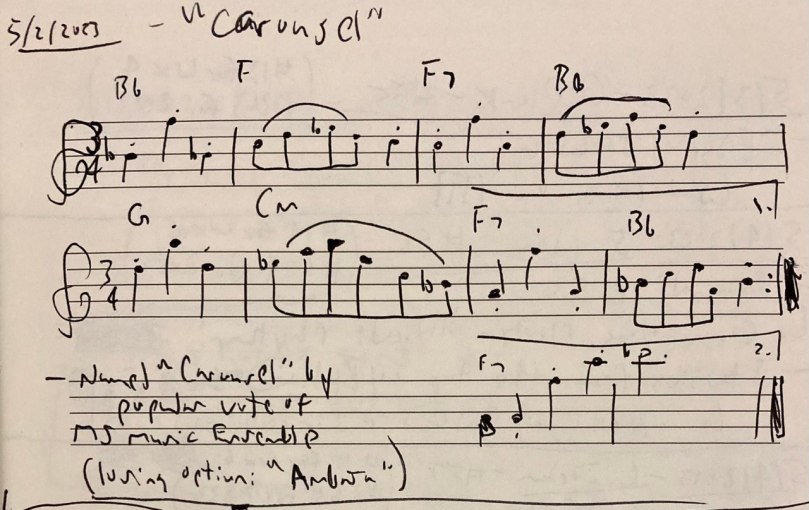 5/2/2023 - "Carousel"
Bb F F7 Bb
3
4
1.
G Cm F7 Bb
3
4
2.
F7
- Named "Carousel" by
popular vote of
MS Music Ensemble
(losing option: "Ambata")